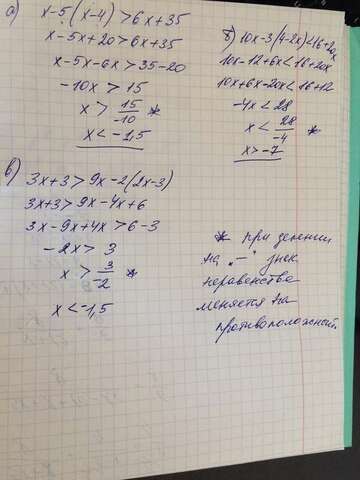 а) x-5(x-4)>6x+35
x-5x+20>6x+35
x-5x-6x>35-20
-10x>15
x>15/-10 *
x<-1,5
б) 10x-3(4-2x)<16+20x
10x-12+6x<16+20x
10x+6x-20x<16+12
-4x<28
x<28/-4 *
x>-7
в) 3x+3>9x-2(2x-3)
3x+3>9x-4x+6
3x-9x+4x>6-3
-2x>3
x>3/-2 *
x<-1,5
* при делении
на „-“ знак
неравенства
меняется на
противоположный